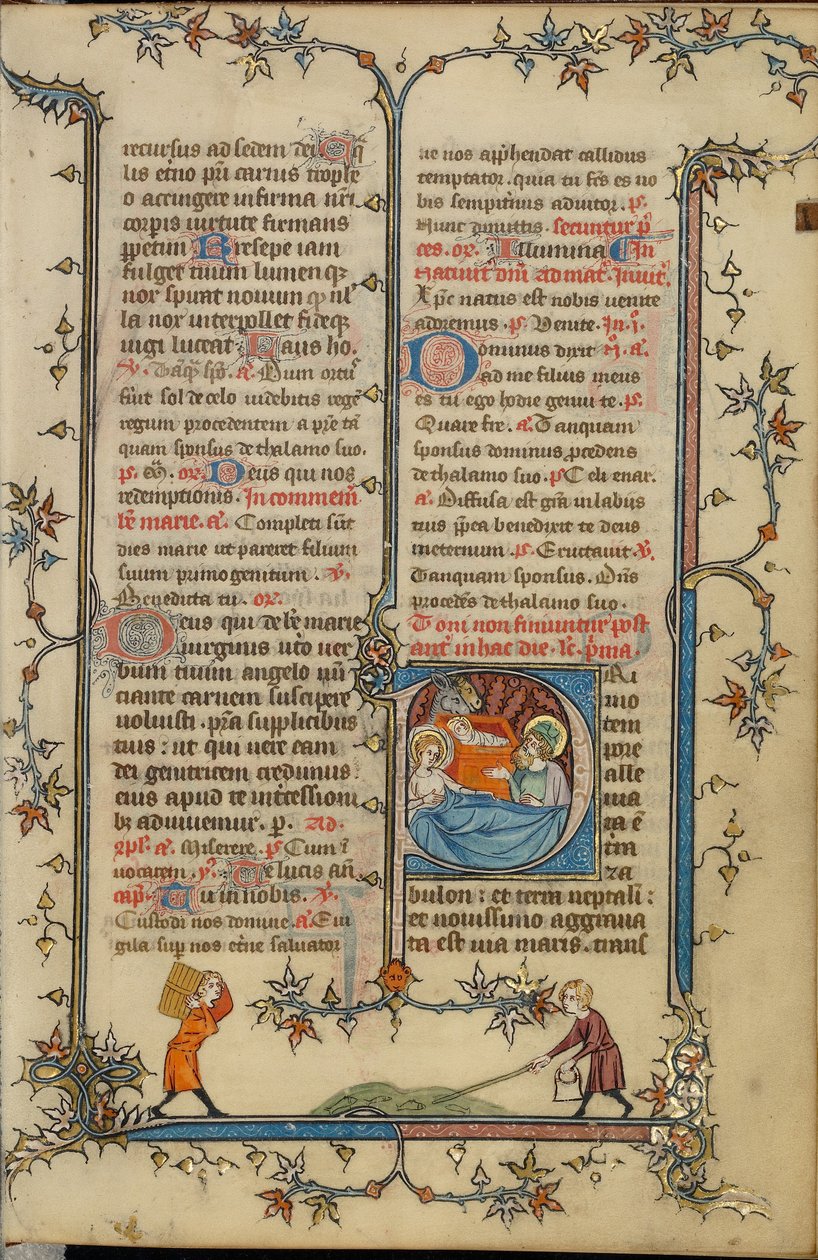 recursus ad sedem dei. Equa
lis et'no pri carnis trophe
o accingere infirma nri
corpis virtute firmans
ppetim Presepe iam
fulget tuum lumen q;
nox spirat novum q nul
la nox interpollet fideq;
iugi luceat Laus ho.
V. Dum ortus
fuit sol de celo videbitis rege
regum procedentem a pre ta
quam sponsus de thalamo suo.
ps. or. Deus qui nos
redemptionis. In commem
be marie. a. Completi sut
dies marie ut pareret filium
suum primogenitum. V.
Benedicta tu. or.
Deus qui de be marie
virginis uto ver
bum tuum angelo nu
ciante carnem suscipere
voluisti. pra supplicibus
tuis: ut qui vere eam
dei genitricem credimus
eius apud te intcessioni
b; adiuvemur. p. Ad
cpl. a. Miserere. ps Cum i
vocarem. y. Te lucis an.
cap. Tu in nobis. V.
Custodi nos domine. a. Evi
gila sup nos et'ne salvator
ne nos apphendat callidus
temptator. quia tu fcs es no
bis sempit'nus adiutor. ps.
Nunc dimittis. secuntur p
ces. or. Illumina In
nativit dni ad mat. Invit.
Xpc natus est nobis venite
adoremus. ps. Venite. In. i.
Dominus dixit n. a.
ad me filius meus
es tu ego hodie genui te. ps.
Quare fre. a. Tanquam
sponsus dominus pcedens
de thalamo suo. ps Celi enar.
a. Diffusa est gra in labiis
tuis pptea benedixit te deus
ineternum. ps. Eructavit. V.
Tanquam sponsus. Dns
procedes de thalamo suo.
Toni non finiuntur post
ant in hac die. Lc. pma.
Pri
mo
tem
pre
alle
via
ta e
tra
za
bulon: et terra neptali:
et novissimo aggrava
ta est via maris. trans